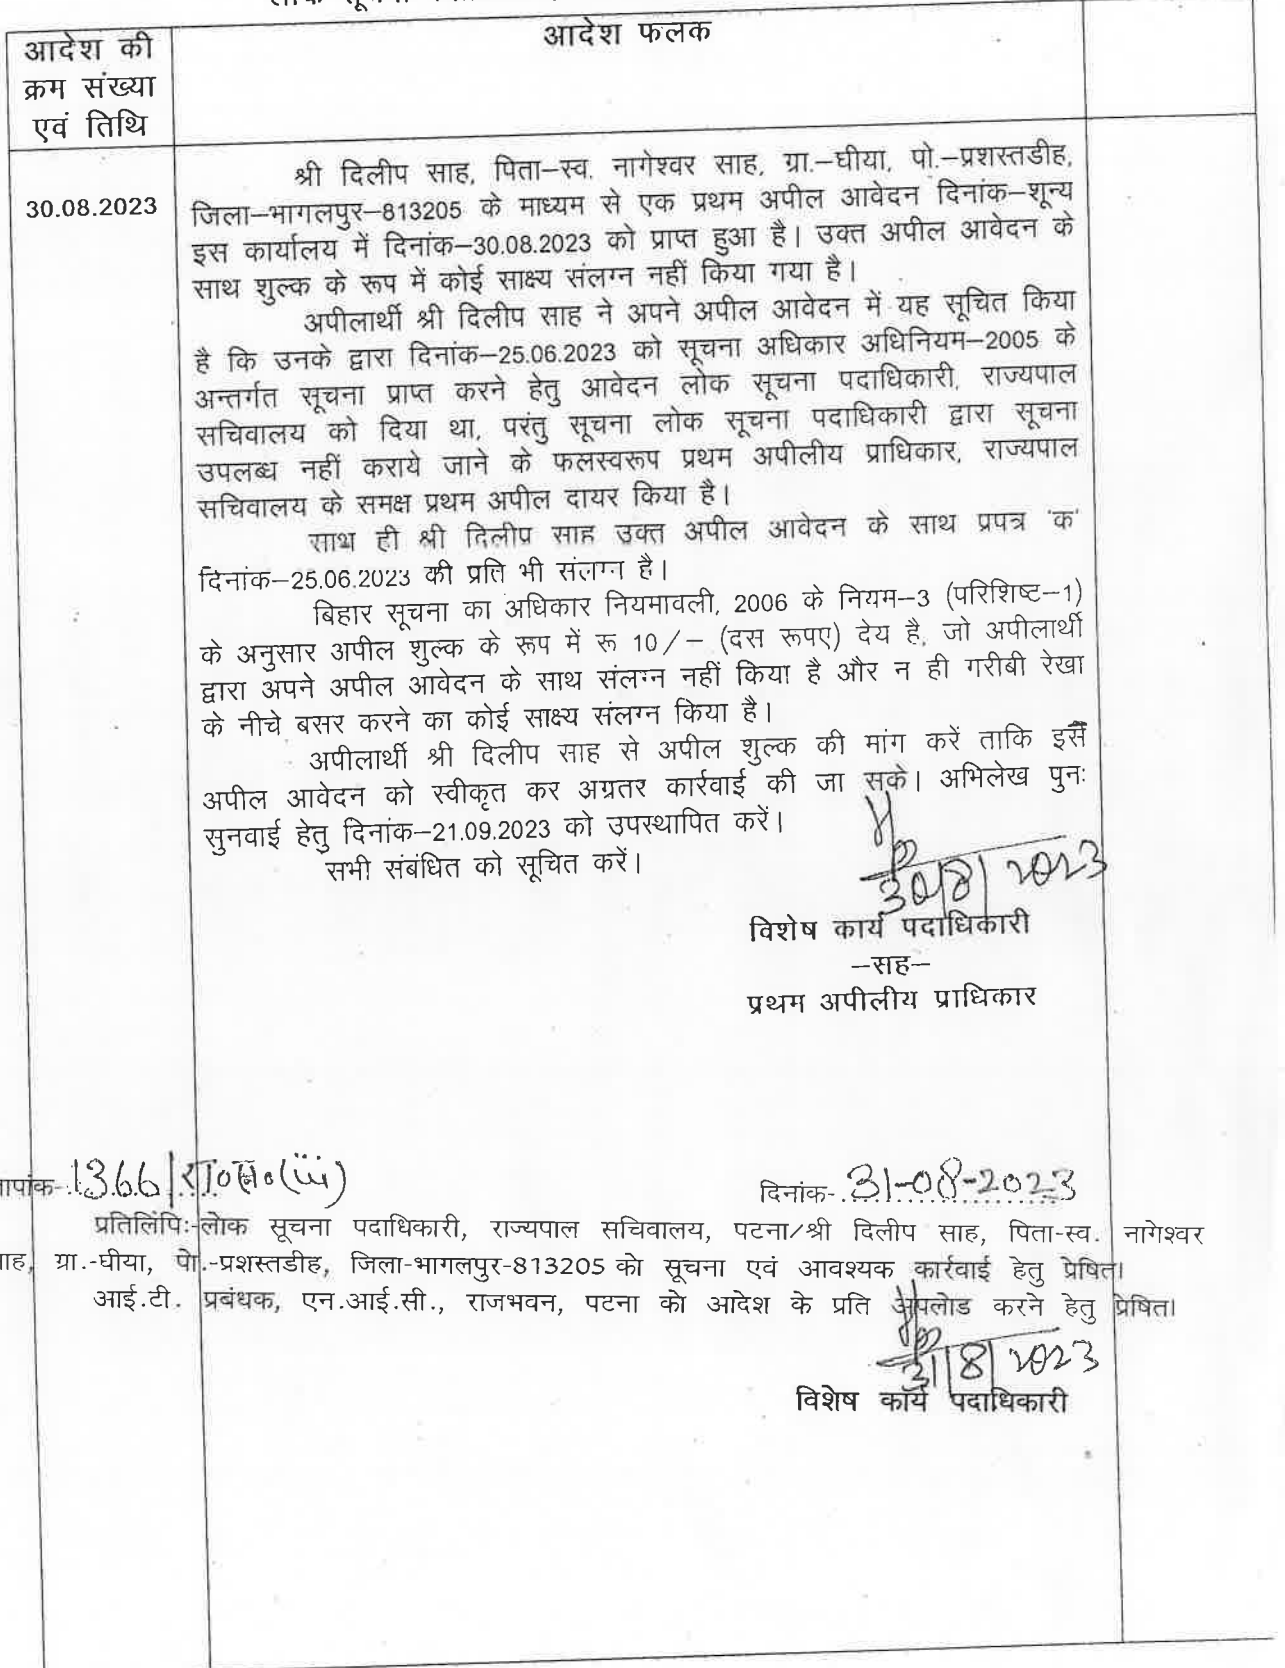 लोक सूचना
आदेश की
क्रम संख्या
एवं तिथि
आदेश फलक
30.08.2023
श्री दिलीप साह, पिता–स्व. नागेश्वर साह, ग्रा.–घीया, पो.–प्रशस्तडीह,
जिला–भागलपुर–813205 के माध्यम से एक प्रथम अपील आवेदन दिनांक–शून्य
इस कार्यालय में दिनांक–30.08.2023 को प्राप्त हुआ है। उक्त अपील आवेदन के
साथ शुल्क के रूप में कोई साक्ष्य संलग्न नहीं किया गया है।
अपीलार्थी श्री दिलीप साह ने अपने अपील आवेदन में यह सूचित किया
है कि उनके द्वारा दिनांक–25.06.2023 को सूचना अधिकार अधिनियम–2005 के
अन्तर्गत सूचना प्राप्त करने हेतु आवेदन लोक सूचना पदाधिकारी, राज्यपाल
सचिवालय को दिया था, परंतु सूचना लोक सूचना पदाधिकारी द्वारा सूचना
उपलब्ध नहीं कराये जाने के फलस्वरूप प्रथम अपीलीय प्राधिकार, राज्यपाल
सचिवालय के समक्ष प्रथम अपील दायर किया है।
साथ ही श्री दिलीप साह उक्त अपील आवेदन के साथ प्रपत्र 'क'
दिनांक–25.06.2023 की प्रति भी संलग्न है।
बिहार सूचना का अधिकार नियमावली, 2006 के नियम–3 (परिशिष्ट–1)
के अनुसार अपील शुल्क के रूप में रू 10/– (दस रूपए) देय है, जो अपीलार्थी
द्वारा अपने अपील आवेदन के साथ संलग्न नहीं किया है और न ही गरीबी रेखा
के नीचे बसर करने का कोई साक्ष्य संलग्न किया है।
अपीलार्थी श्री दिलीप साह से अपील शुल्क की मांग करें ताकि इसे
अपील आवेदन को स्वीकृत कर अग्रतर कार्रवाई की जा सके। अभिलेख पुनः
सुनवाई हेतु दिनांक–21.09.2023 को उपस्थापित करें।
सभी संबंधित को सूचित करें।
30/8/2023
विशेष कार्य पदाधिकारी
–सह–
प्रथम अपीलीय प्राधिकार
ापांक-1366/रा०स०(iii) दिनांक-31-08-2023
प्रतिलिपिः-लोक सूचना पदाधिकारी, राज्यपाल सचिवालय, पटना/श्री दिलीप साह, पिता-स्व. नागेश्वर
ाह, ग्रा.-घीया, पो.-प्रशस्तडीह, जिला-भागलपुर-813205 को सूचना एवं आवश्यक कार्रवाई हेतु प्रेषित।
आई.टी. प्रबंधक, एन.आई.सी., राजभवन, पटना को आदेश के प्रति अपलोड करने हेतु प्रेषित।
31/8/2023
विशेष कार्य पदाधिकारी